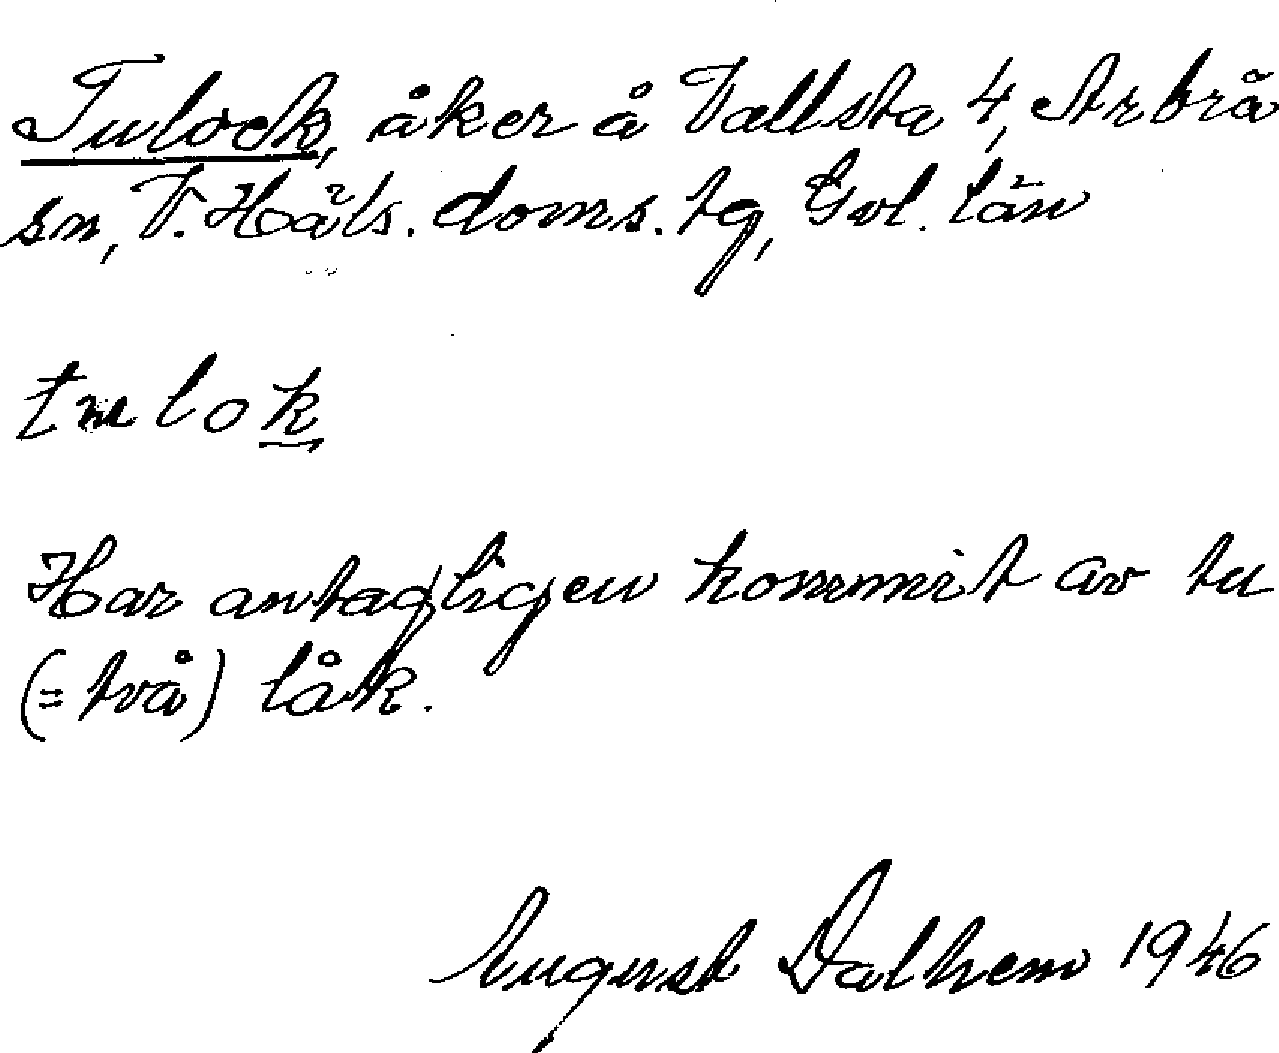 Tulock, åker å Vallsta 4, Arbrå
sn, V. Häls. doms. tg, Gvl. län
tulok
Har antagligen kommit av tu
(= två) låk.
August Dalhem 1946